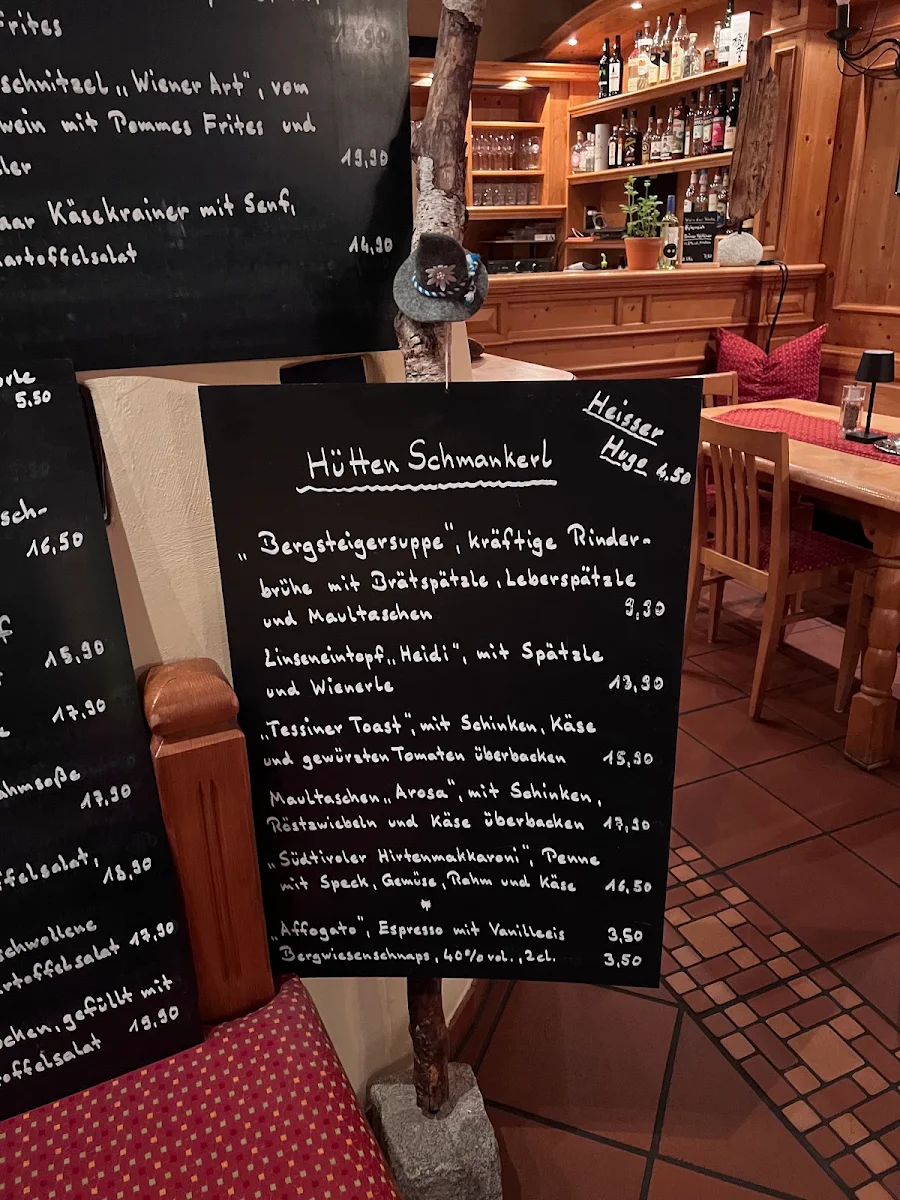 Frites
schnitzel „Wiener Art", vom
wein mit Pommes Frites und
19,90
Käsekrainer mit Senf,
14,90
5,50
16,50
15,90
17,90
17,90
18,90
17,90
gefüllt mit
19,90
Hütten Schmankerl
Heisser
Hugo 4,50
„Bergsteigersuppe", kräftige Rinder-
brühe mit Brätspätzle, Leberspätzle
und Maultaschen 9,90
Linseneintopf „Heidi", mit Spätzle
und Wienerle 13,90
„Tessiner Toast", mit Schinken, Käse
und gewürzten Tomaten überbacken 15,90
Maultaschen „Arosa", mit Schinken,
Röstzwiebeln und Käse überbacken 17,90
„Südtiroler Hirtenmakkaroni", Penne
mit Speck, Gemüse, Rahm und Käse 16,50
„Affogato", Espresso mit Vanilleeis 3,50
Bergwiesenschnaps, 40% vol., 2cl. 3,50